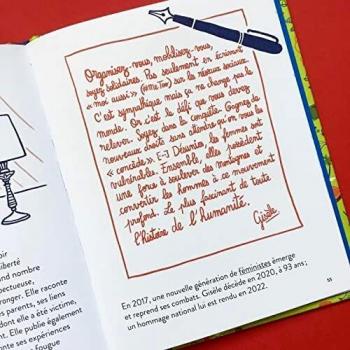 Organisez-vous, mobilisez-vous,
soyez solidaires. Pas seulement en écrivant
« moi aussi » (#MeToo) sur les réseaux sociaux.
C'est sympathique mais ça ne change pas le
monde. Or c'est le défi que vous devez
relever. Soyez dans la conquête. Gagnez de
nouveaux droits sans attendre qu'on vous les
« concède ». [...] Désunies, les femmes sont
vulnérables. Ensemble, elles possèdent
une force à soulever des montagnes et
convertir les hommes à ce mouvement
profond. Le plus fascinant de toute
l'histoire de l'humanité.
Gisèle
En 2017, une nouvelle génération de féministes émerge
et reprend ses combats. Gisèle décède en 2020, à 93 ans ;
un hommage national lui est rendu en 2022.
55
oir
liberté
and nombre
pectueuse,
ronger. Elle raconte
s parents, ses liens
dont elle a été victime,
. Elle publie également
te ses expériences
fougue